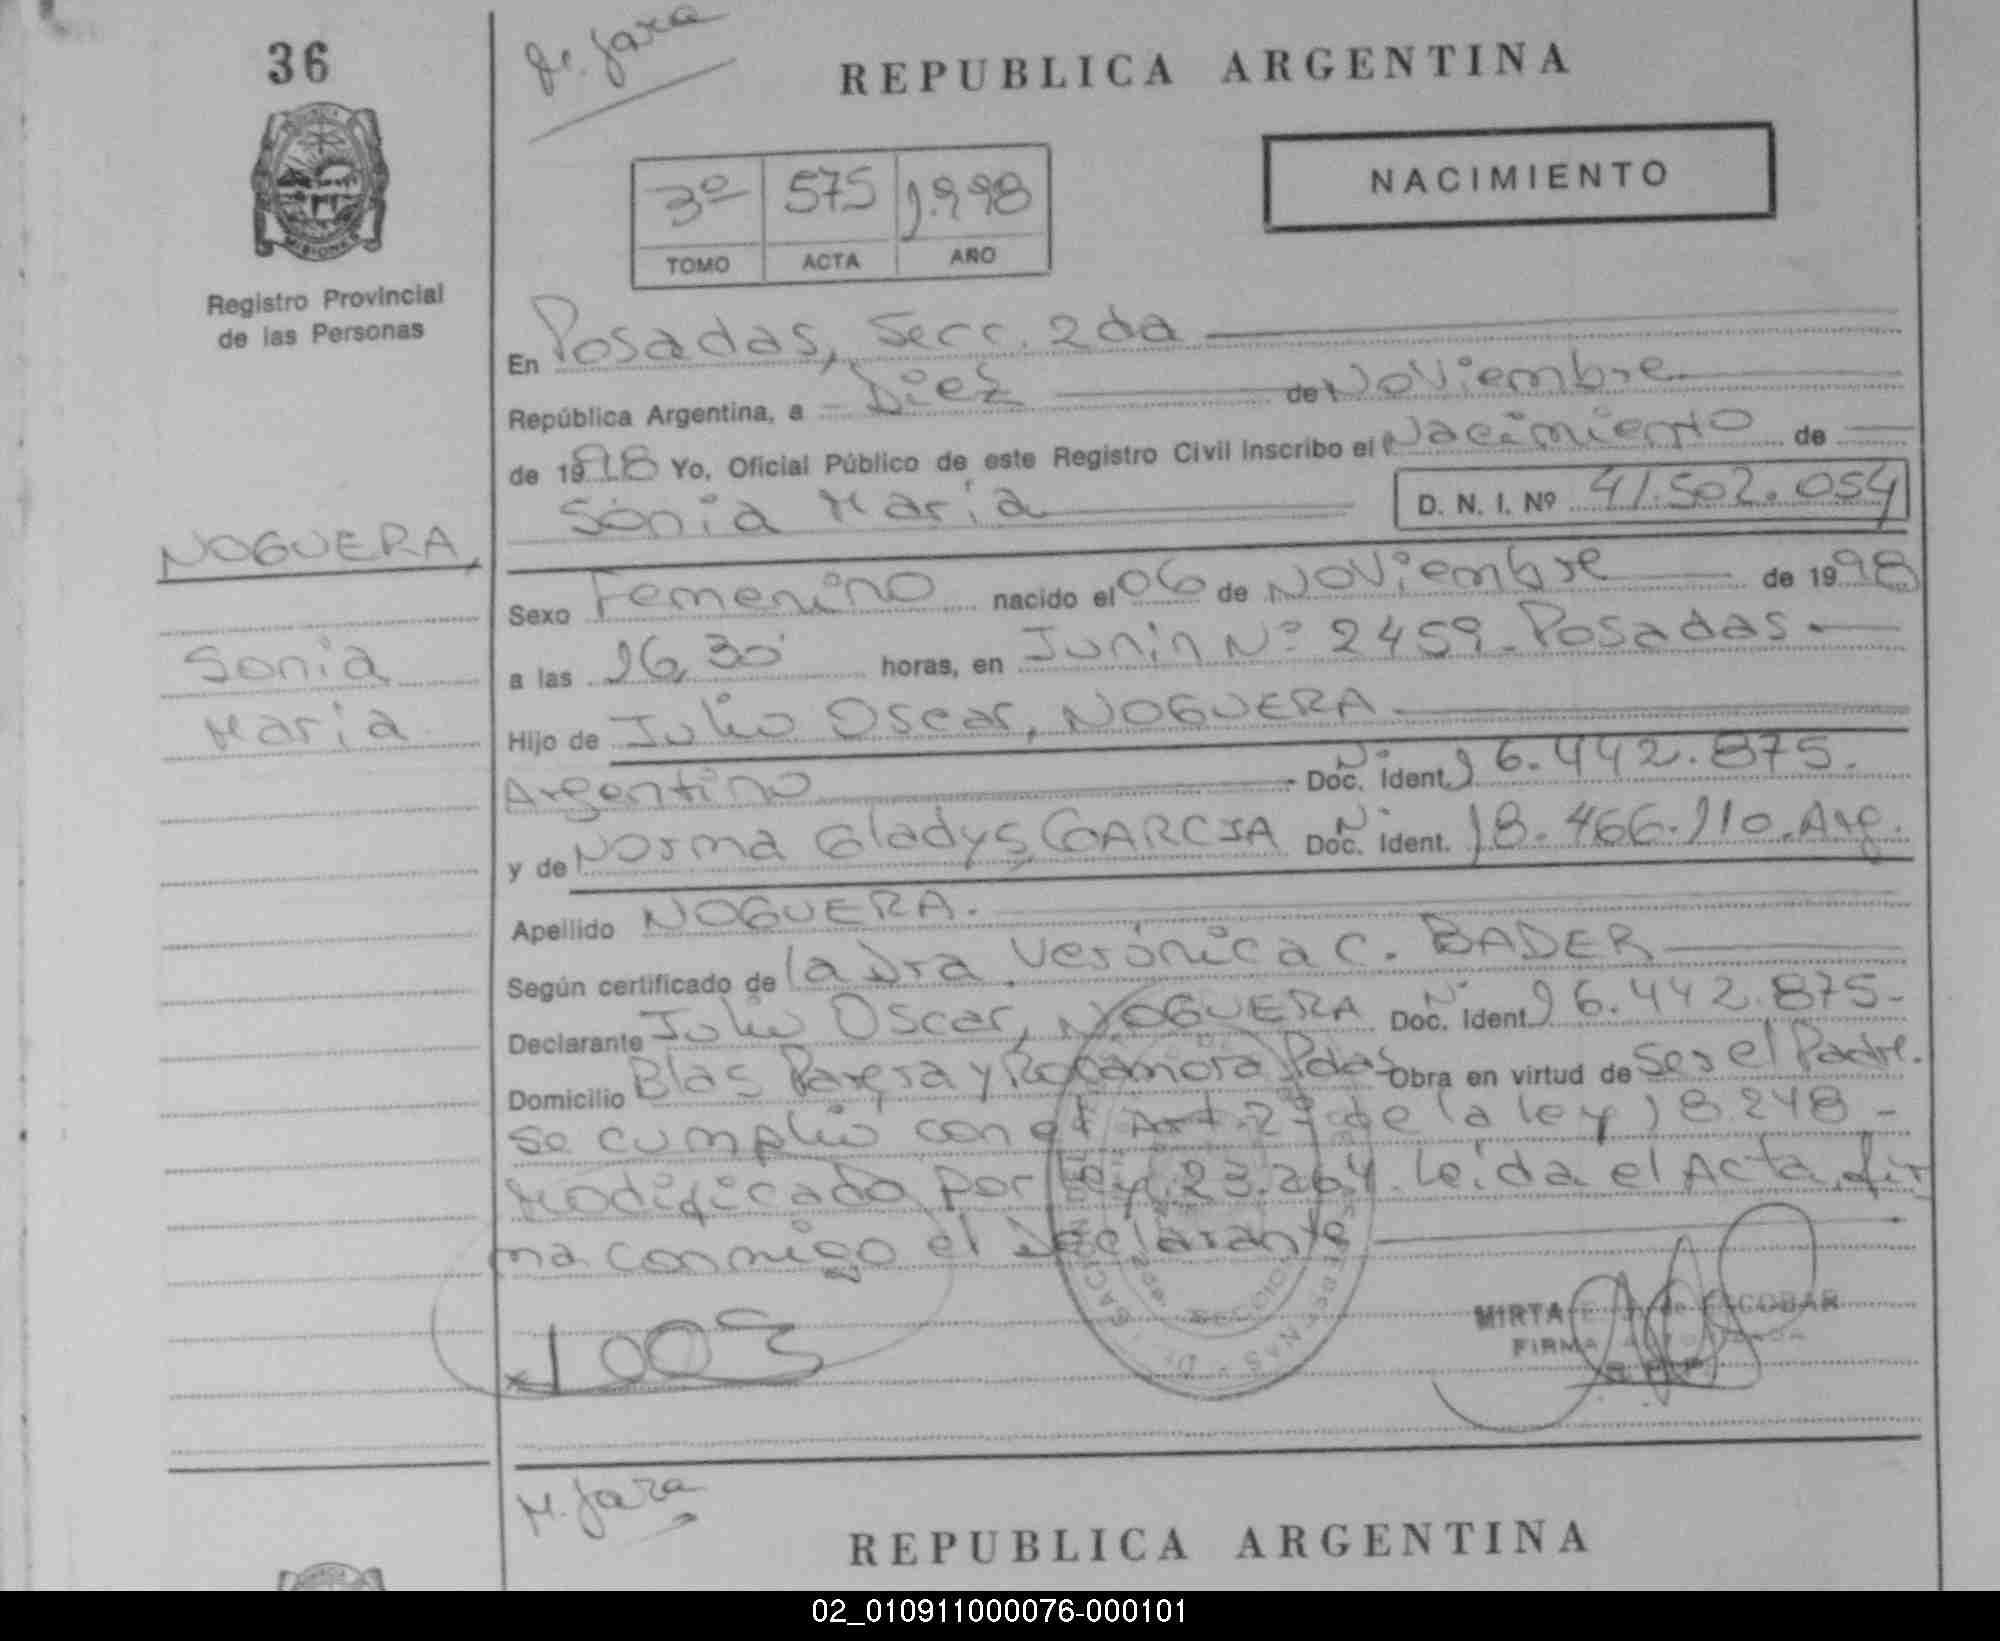 36
M. Jara
REPUBLICA ARGENTINA
NACIMIENTO
3º 575 1.998
TOMO ACTA AÑO
Registro Provincial
de las Personas
En Posadas, Secc. 2da
República Argentina, a Diez de Noviembre
de 1998 Yo, Oficial Público de este Registro Civil inscribo el Nacimiento de
Sonia Maria D. N. I. Nº 41.502.054
NOGUERA,
Sonia
Maria
Sexo Femenino nacido el 06 de Noviembre de 1998
a las 16,30 horas, en Junin Nº 2459 - Posadas -
Hijo de Julio Oscar, NOGUERA
Argentino Doc. Ident. 16.442.875.
y de Norma Gladys, GARCIA Doc. Ident. 18.466.110. Arg.
Apellido NOGUERA.
Según certificado de la Dra. Verónica C. BADER
Declarante Julio Oscar, NOGUERA Doc. Ident. 16.442.875-
Domicilio Blas Parera y Rocamora Pdas Obra en virtud de Ser el Padre.
Se cumplió con el Art. 2º de la ley 18.248 -
Modificado por Ley 23.264. Leida el Acta, fir
ma conmigo el Declarante
MIRTA ESCOBAR
FIRMA
M. Jara
REPUBLICA ARGENTINA
02_010911000076-000101